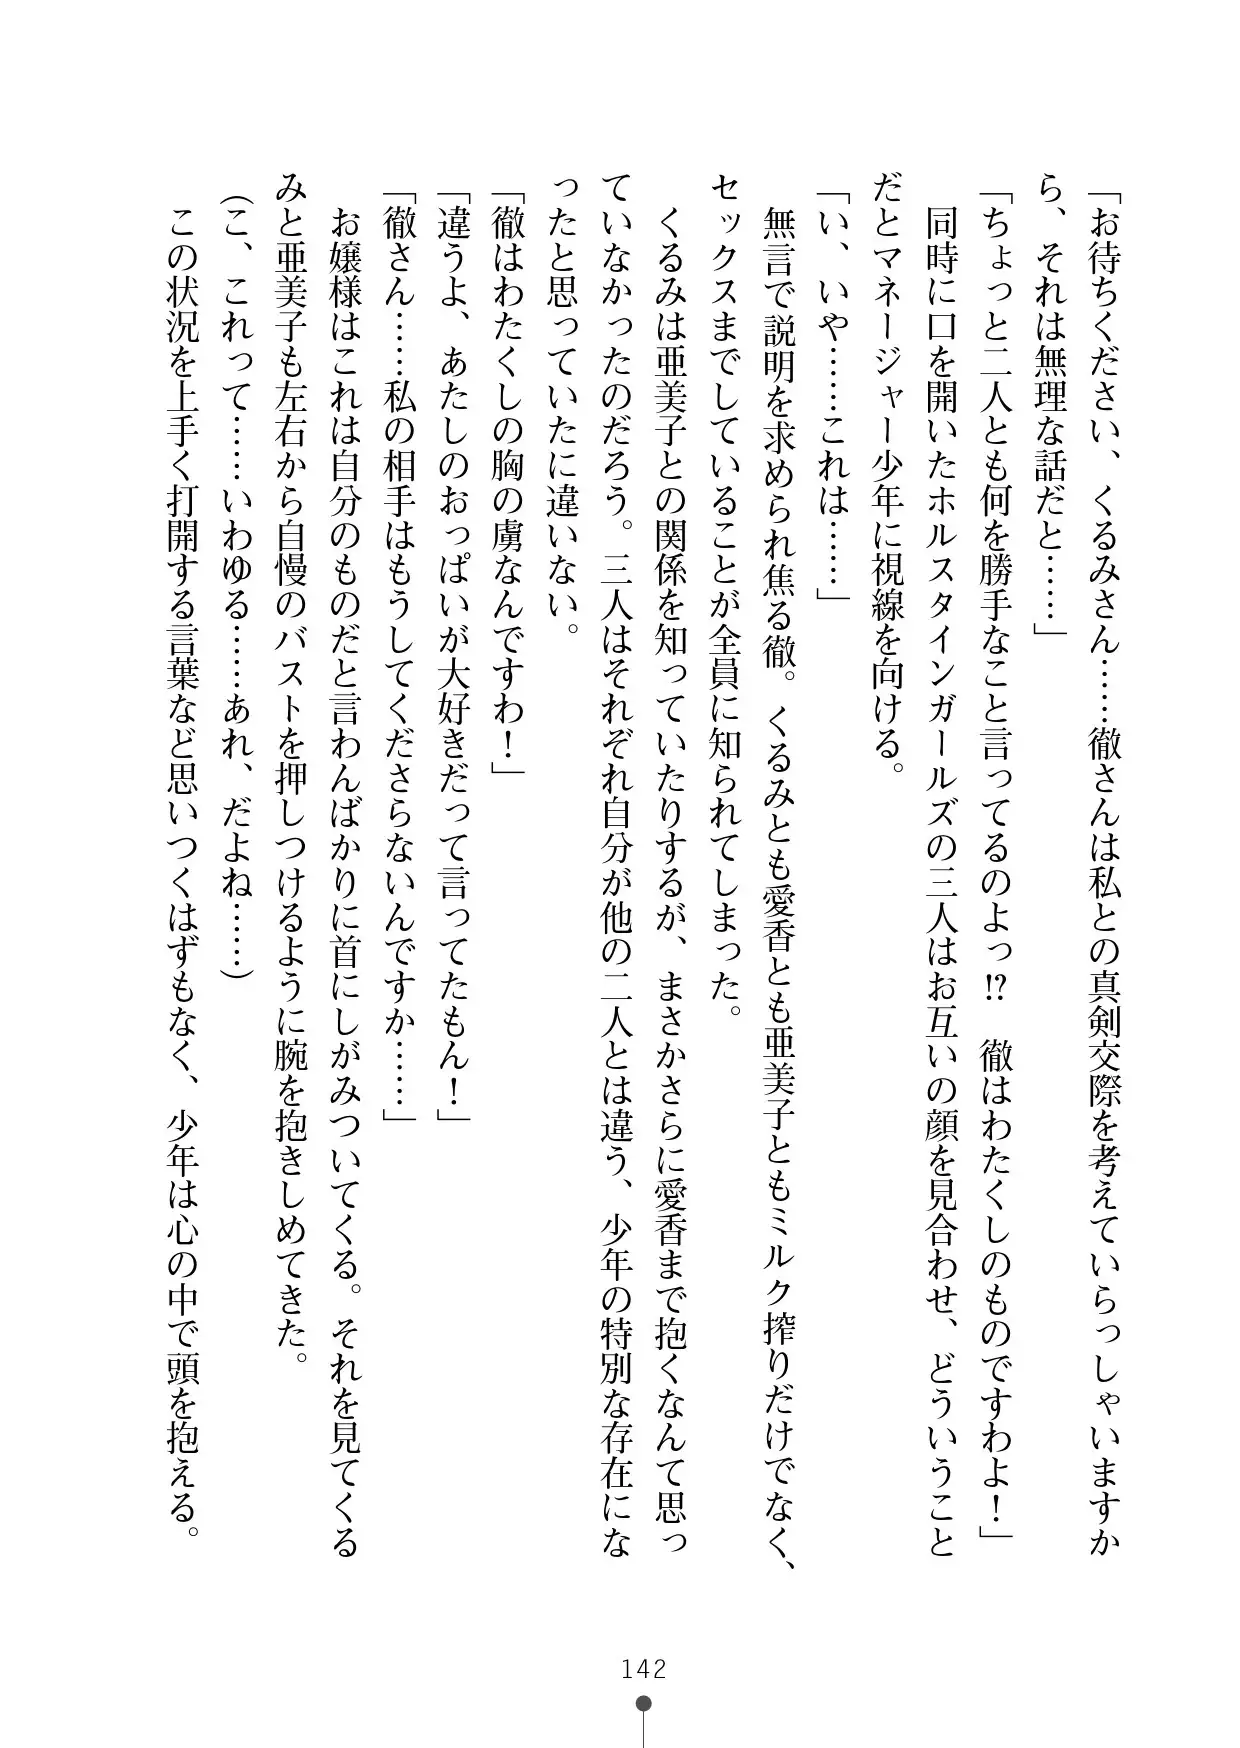 「お待ちください、くるみさん……徹さんは私との真剣交際を考えていらっしゃいますか
ら、それは無理な話だと……」
「ちょっと二人とも何を勝手なこと言ってるのよっ!?　徹はわたくしのものですわよ！」
　同時に口を開いたホルスタインガールズの三人はお互いの顔を見合わせ、どういうこと
だとマネージャー少年に視線を向ける。
「い、いや……これは……」
　無言で説明を求められ焦る徹。くるみとも愛香とも亜美子ともミルク搾りだけでなく、
セックスまでしていることが全員に知られてしまった。
　くるみは亜美子との関係を知っていたりするが、まさかさらに愛香まで抱くなんて思っ
ていなかったのだろう。三人はそれぞれ自分が他の二人とは違う、少年の特別な存在にな
ったと思っていたに違いない。
「徹はわたくしの胸の虜なんですわ！」
「違うよ、あたしのおっぱいが大好きだって言ってたもん！」
「徹さん……私の相手はもうしてくださらないんですか……」
　お嬢様はこれは自分のものだと言わんばかりに首にしがみついてくる。それを見てくる
みと亜美子も左右から自慢のバストを押しつけるように腕を抱きしめてきた。
（こ、これって……いわゆる……あれ、だよね……）
　この状況を上手く打開する言葉など思いつくはずもなく、少年は心の中で頭を抱える。
142